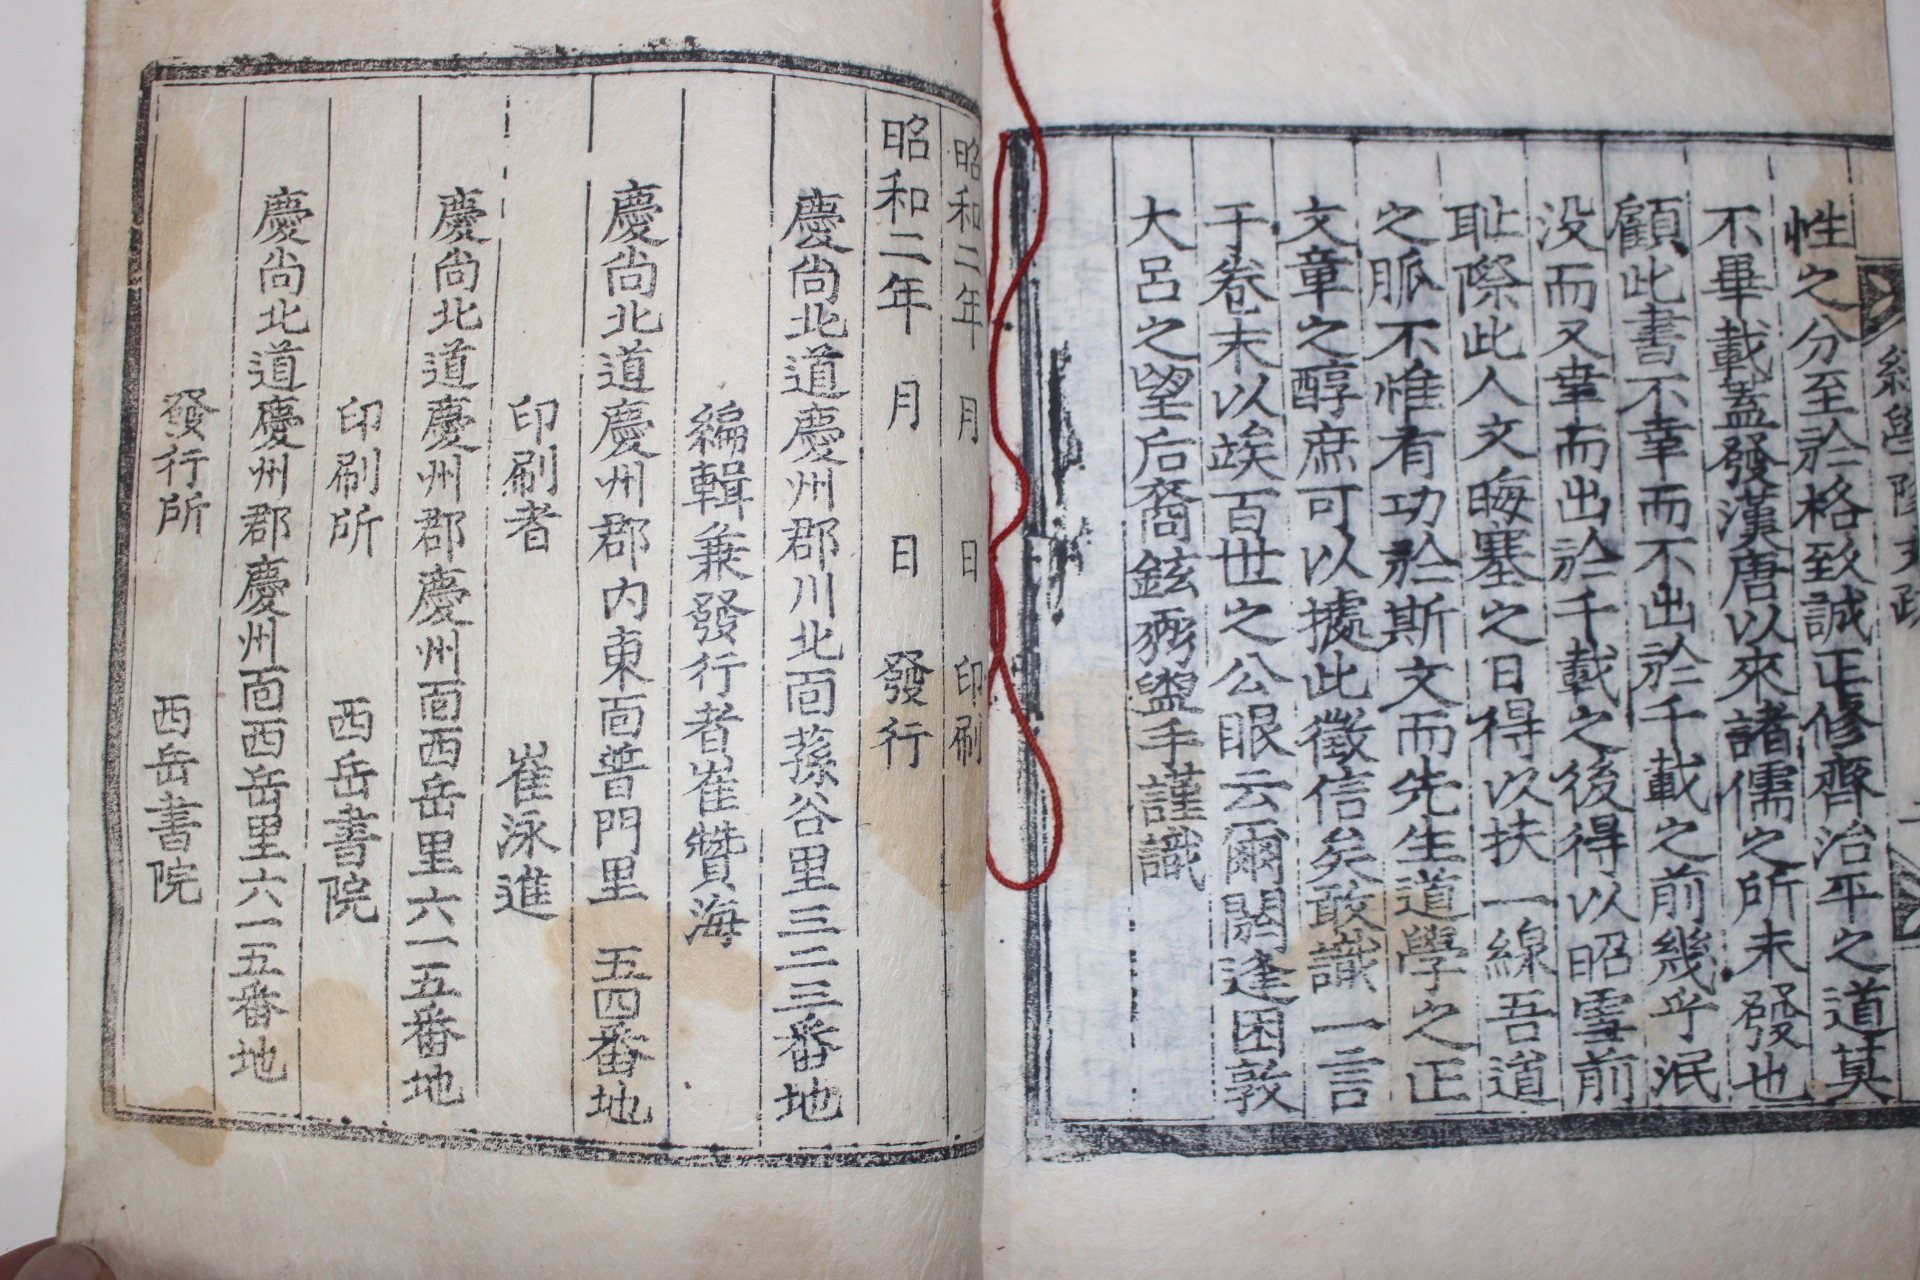 性之分至於格致誠正修齊治平之道莫
不畢載盖發漢唐以來諸儒之所未發也
顧此書不幸而不出於千載之前幾乎泯
没而又幸而出於千載之後得以昭雪前
耻際此人文晦塞之日得以扶一線吾道
之脈不惟有功於斯文而先生道學之正
文章之醇庶可以據此徵信矣敢識一言
于卷末以竢百世之公眼云爾閼逢困敦
大呂之望后裔鉉弼盥手謹識
昭和二年 月 日 印刷
昭和二年 月 日 發行
慶尙北道慶州郡川北面蓀谷里三二三番地
編輯兼發行者崔贊海
慶尙北道慶州郡內東面普門里 五四番地
印刷者 崔泳進
慶尙北道慶州郡慶州面西岳里六一五番地
印刷所 西岳書院
慶尙北道慶州郡慶州面西岳里六一五番地
發行所 西岳書院